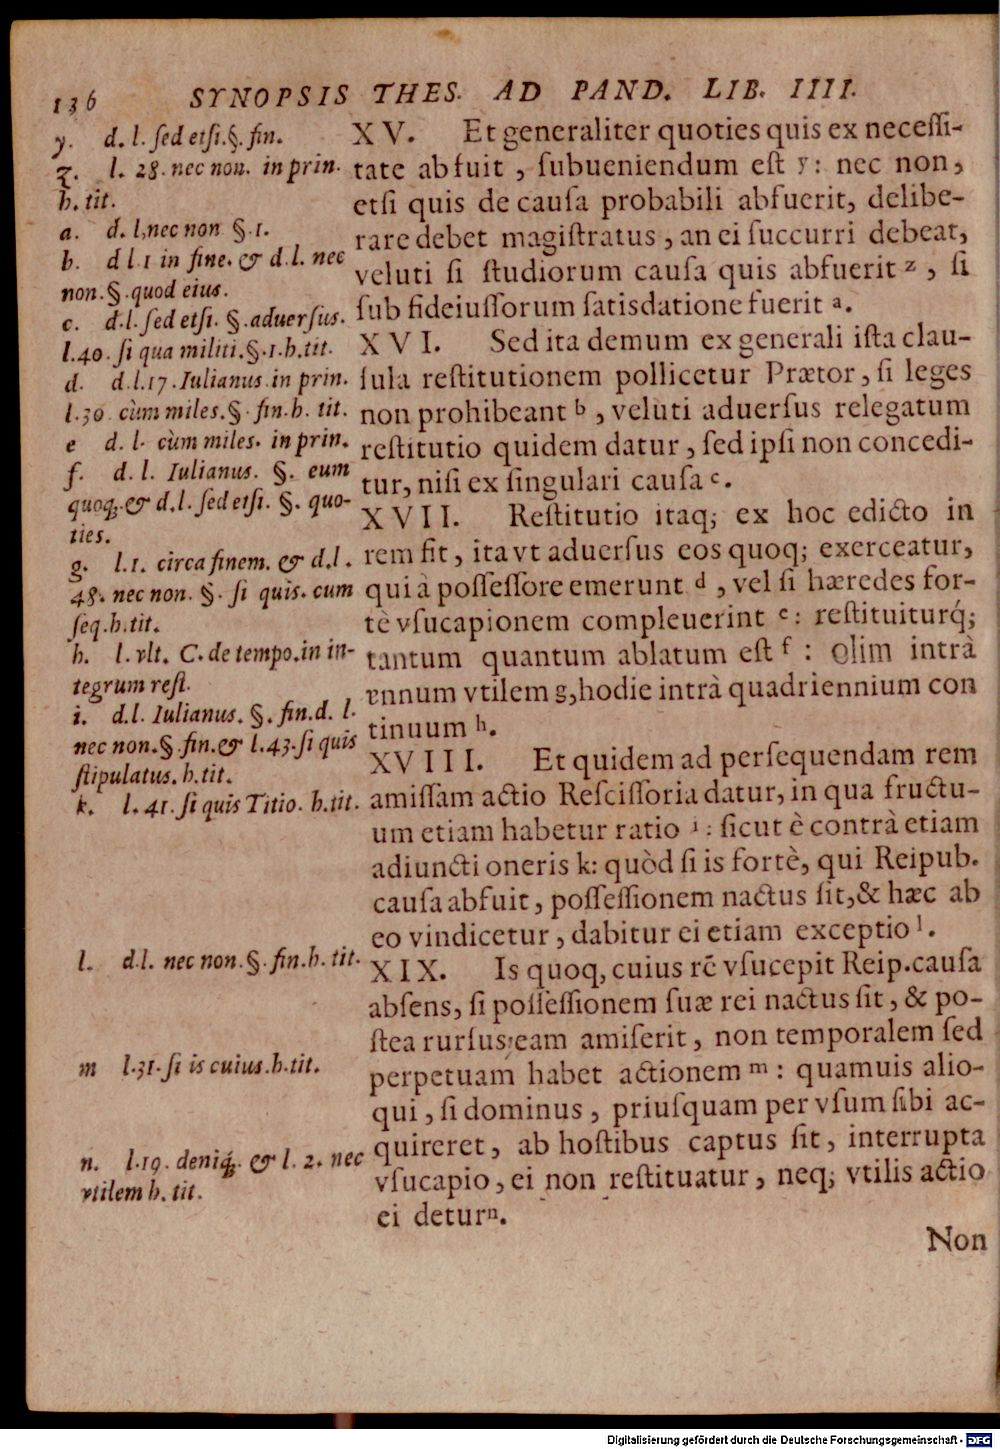 136 SYNOPSIS THES. AD PAND. LIB. IIII.
y. d. l. ſed etſi. §. fin.
z. l. 28. nec non. in prin.
h. tit.
a. d. l, nec non §. 1.
b. d l. 1 in fine. & d. l. nec
non. §. quod eius.
c. d. l. ſed etſi. §. aduerſus.
l. 40. ſi qua militi. §. 1. h. tit.
d. d. l. 17. Iulianus in prin.
l. 30 cùm miles. § fin. h. tit.
e d. l. cùm miles. in prin.
f. d. l. Iulianus. §. eum
quoq; & d. l. ſed etſi. §. quo-
ties.
g. l. 1. circa finem. & d. l.
48. nec non. §. ſi quis. cum
ſeq. h. tit.
h. l. vlt. C. de tempo. in in-
tegrum reſt.
i. d. l. Iulianus. §. fin. d. l.
nec non. § fin. & l. 43. ſi quis
ſtipulatus. h. tit.
k. l. 41. ſi quis Titio. h. tit.
l. d. l. nec non. §. fin. h. tit.
m l. 31. ſi is cuius. h. tit.
n. l. 19. deniq́; & l. 2. nec
vtilem h. tit.
XV. Et generaliter quoties quis ex neceſſi-
tate abfuit, ſubueniendum eſt y: nec non,
etſi quis de cauſa probabili abfuerit, delibe-
rare debet magiſtratus, an ei ſuccurri debeat,
veluti ſi ſtudiorum cauſa quis abfuerit z, ſi
ſub fideiuſſorum ſatisdatione fuerit a.
XVI. Sed ita demum ex generali iſta clau-
ſula reſtitutionem pollicetur Prætor, ſi leges
non prohibeant b, veluti aduerſus relegatum
reſtitutio quidem datur, ſed ipſi non concedi-
tur, niſi ex ſingulari cauſa c.
XVII. Reſtitutio itaq; ex hoc edicto in
rem fit, ita vt aduerſus eos quoq; exerceatur,
qui à poſſeſſore emerunt d, vel ſi hæredes for-
tè vſucapionem compleuerint e: reſtituiturq́;
tantum quantum ablatum eſt f: olim intrà
ennum vtilem g, hodie intrà quadriennium con
tinuum h.
XVIII. Et quidem ad perſequendam rem
amiſſam actio Reſciſſoria datur, in qua fructu-
um etiam habetur ratio i: ſicut è contrà etiam
adiuncti oneris k: quòd ſi is fortè, qui Reipub.
cauſa abfuit, poſſeſſionem nactus ſit, & hæc ab
eo vindicetur, dabitur ei etiam exceptio l.
XIX. Is quoq, cuius rē vſucepit Reip. cauſa
abſens, ſi poſſeſſionem ſuæ rei nactus ſit, & po-
ſtea rurſus, eam amiſerit, non temporalem ſed
perpetuam habet actionem m: quamuis alio-
qui, ſi dominus, priuſquam per vſum ſibi ac-
quireret, ab hoſtibus captus ſit, interrupta
vſucapio, ei non reſtituatur, neq; vtilis actio
ei detur n.
Non
Digitalisierung gefördert durch die Deutsche Forschungsgemeinschaft - DFG